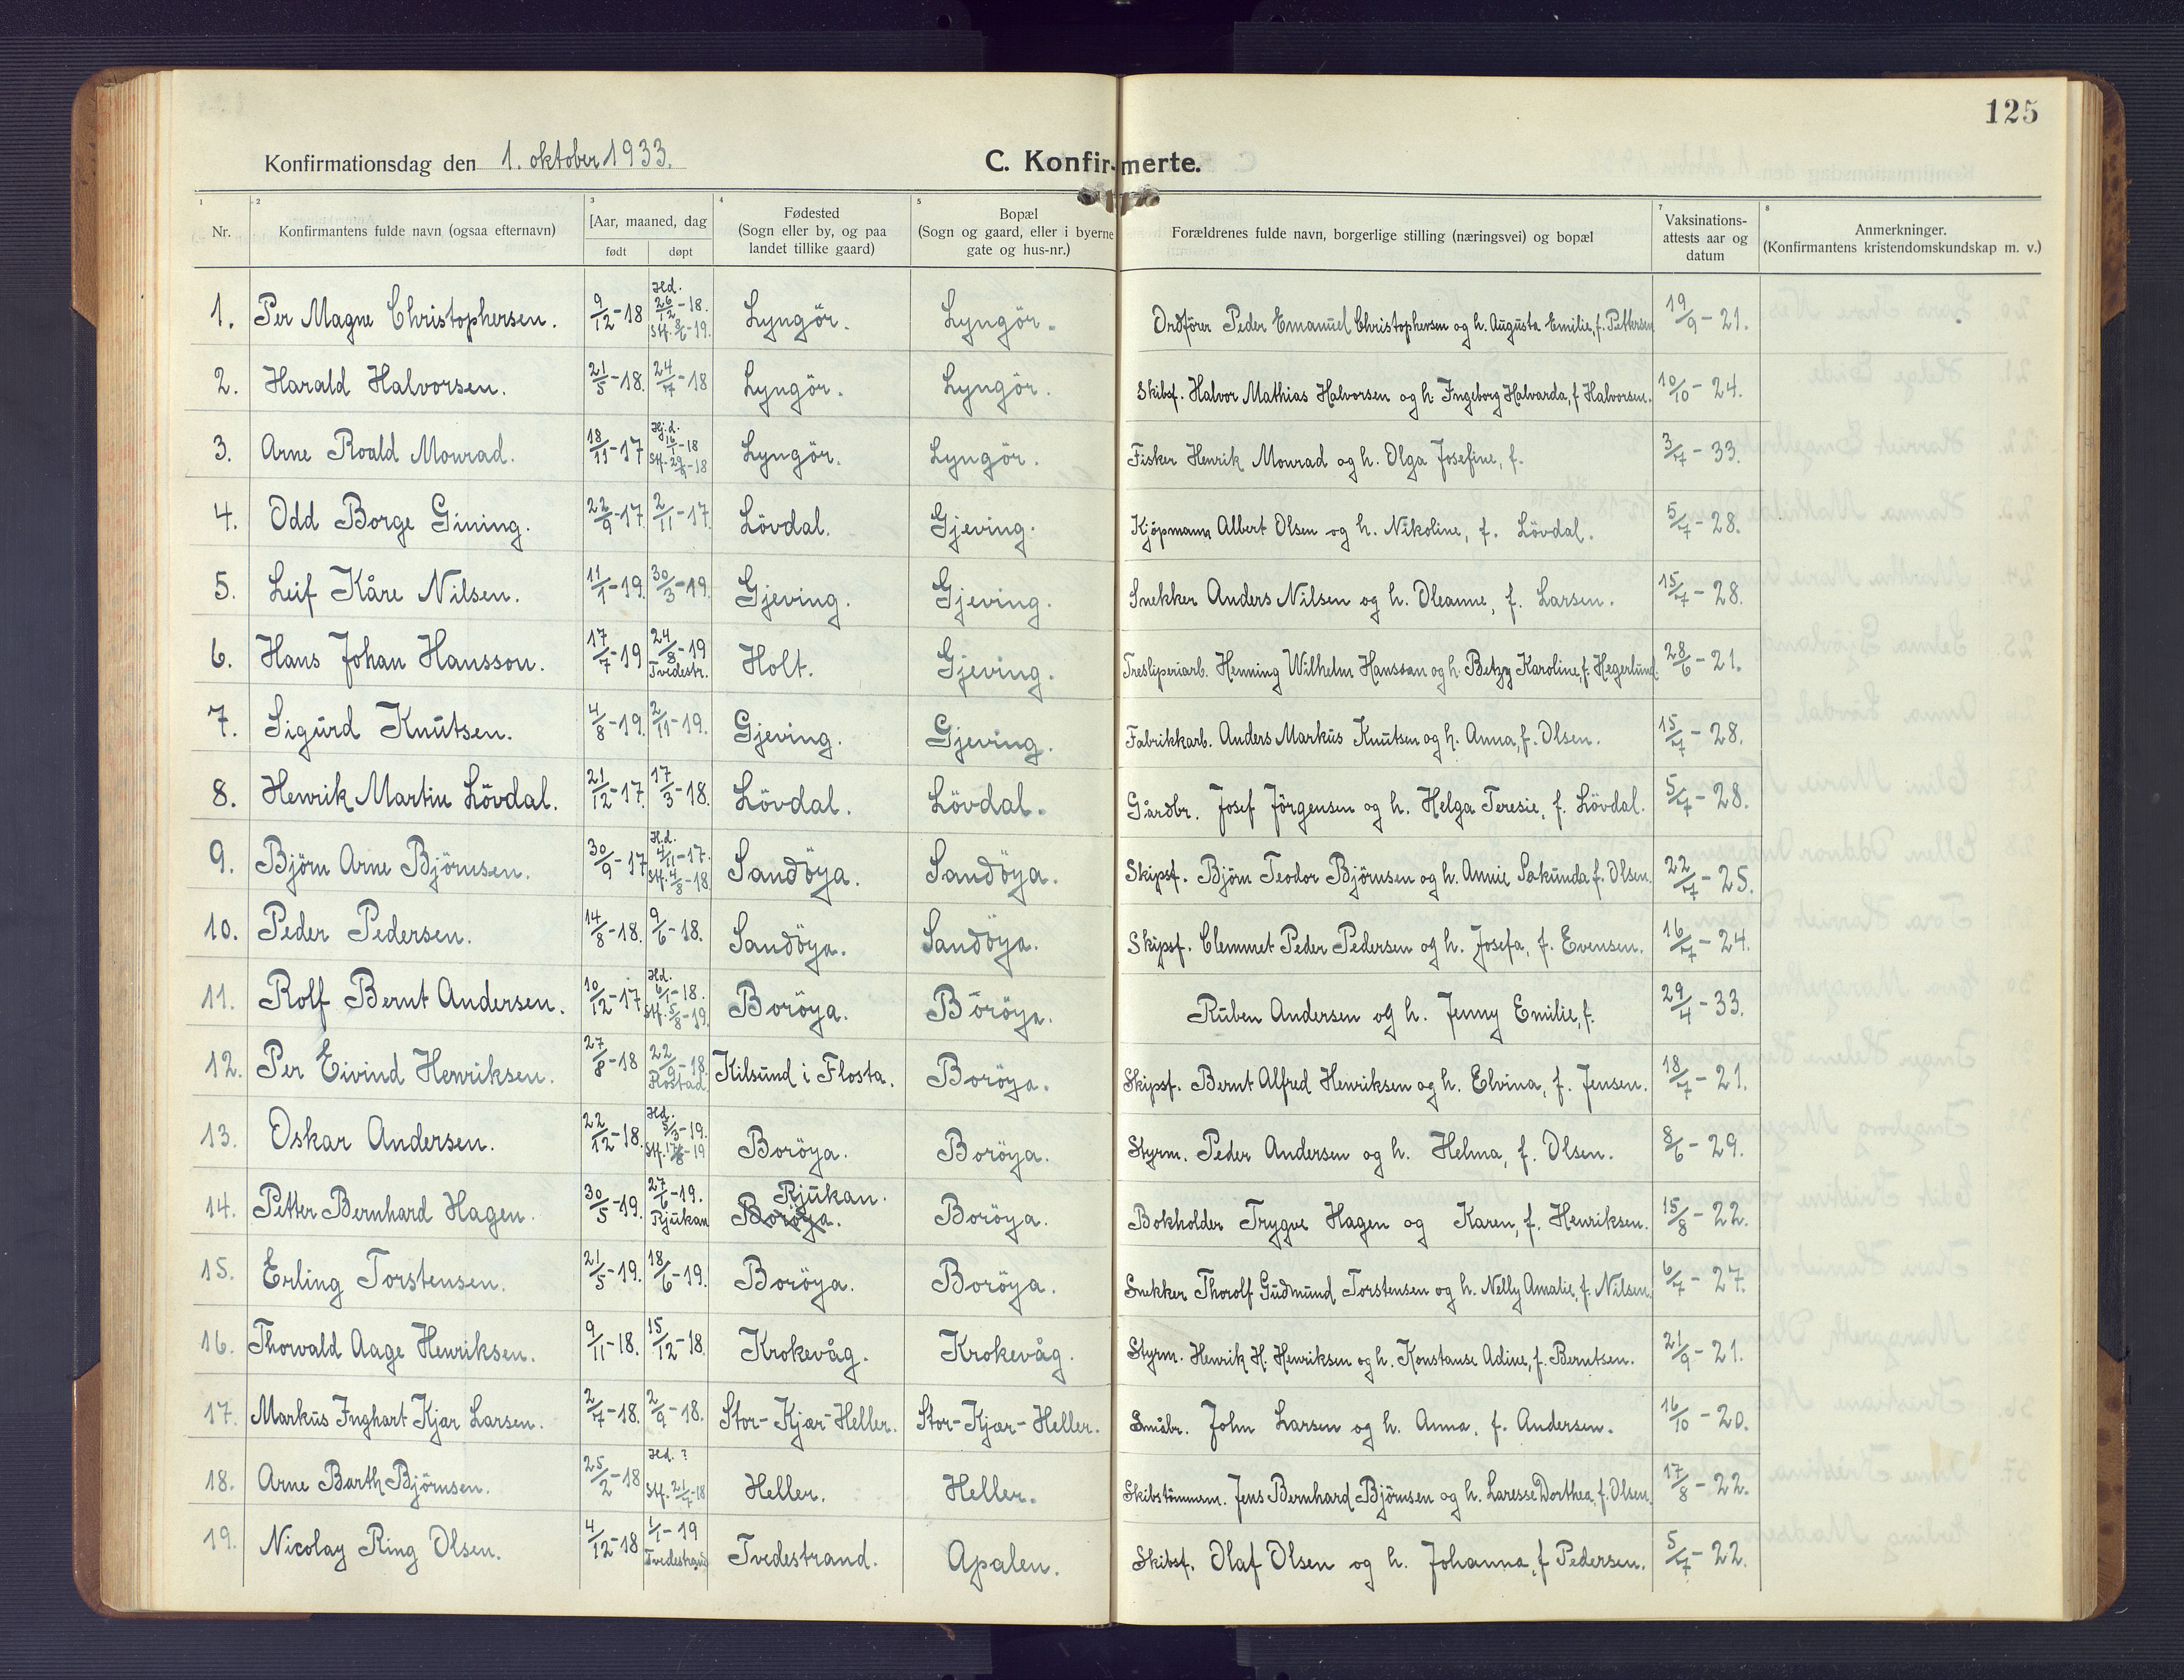 125
Konfirmationsdag den 1. oktober 1933.
C. Konfirmerte.
1 2 3 4 5 7 8
Nr. Konfirmantens fulde navn (ogsaa efternavn) Aar, maaned, dag født døpt Fødested (Sogn eller by, og paa landet tillike gaard) Bopæl (Sogn og gaard, eller i byerne gate og hus-nr.) Forældrenes fulde navn, borgerlige stilling (næringsvei) og bopæl Vaksinations-attests aar og datum Anmerkninger. (Konfirmantens kristendomskundskap m. v.)
1. Per Magne Christophersen. 9/12-18 Hd. 26/12-18. Stf. 8/6-19. Lyngör. Lyngör. Ordförer Peder Emanuel Christophersen og h. Augusta Emilie, f. Pettersen 19/9-21.
2. Harald Halvorsen. 21/5-18. 24/7-18 Lyngör. Lyngör. Skibsf. Halvor Mathias Halvorsen og h. Ingeborg Halvarda, f. Halvorsen. 10/10-24.
3. Arne Roald Monrad. 18/11-17 Hj.d. 16/1-18 Stf. 29/-18 Lyngör. Lyngör. Fisker Henrik Monrad og h. Olga Josefine, f. 3/7-33.
4. Odd Borge Gining. 22/9-17. 2/11-17. Lövdal. Gjeving. Kjøpmann Albert Olsen og h. Nikoline, f. Lövdal. 5/7-28.
5. Leif Kåre Nilsen. 11/1-19. 30/3-19. Gjeving. Gjeving. Snekker Anders Nilsen og h. Oleanne, f. Larsen. 15/7-28.
6. Hans Johan Hansson. 17/7-19 24/8-19 Tvedestr. Holt. Gjeving. Tresliperiarb. Henning Wilhelm Hansson og h. Betzy Karoline, f. Hegerlund. 28/6-21.
7. Sigurd Knutsen. 4/8-19. 2/11-19. Gjeving. Gjeving. Fabrikkarb. Anders Markus Knutsen og h. Anna, f. Olsen. 15/7-28.
8. Henrik Martin Lövdal. 21/12-17. 17/3-18. Lövdal. Lövdal. Gårdbr. Josef Jörgensen og h. Helga Teresie, f. Lövdal. 5/7-28.
9. Björn Arne Björnsen. 30/9-17 H.d. 4/11-17. Stf. 4/8-18. Sandöya. Sandöya. Skipsf. Björn Teodor Björnsen og h. Annie Sakunda f. Olsen. 22/7-25.
10. Peder Pedersen. 14/8-18. 9/6-18. Sandöya. Sandöya. Skipsf. Clemmet Peder Pedersen og h. Josefa, f. Evensen. 16/7-24.
11. Rolf Bernt Andersen. 10/12-17 Hd. 6/1-18. Stf. 5/8-19. Boröya. Boröya. Ruben Andersen og h. Jenny Emilie, f. 29/4-33.
12. Per Eivind Henriksen. 27/8-18 22/9-18. Flostad. Kilsund i Flosta. Boröya. Skipsf. Bernt Alfred Henriksen og h. Elvina, f. Jensen. 18/7-21.
13. Oskar Andersen. 22/12-18. Hd. 5/3-19. Stf. 17/8-19 Boröya. Boröya. Styrm. Peder Andersen og h. Helma, f. Olsen. 8/6-29.
14. Petter Bernhard Hagen. 30/5-19. 27/6-19. Rjukan Rjukan. Boröya. Boröya. Bokholder Trygve Hagen og Karen, f. Henriksen. 15/8-22.
15. Erling Torstensen. 21/5-19. 18/6-19. Boröya. Boröya. Snekker Thorolf Gudmund Torstensen og h. Nelly Amalie, f. Nilsen. 6/7-27.
16. Thorvald Aage Henriksen. 9/11-18. 15/12-18. Krokevåg. Krokevåg. Styrm. Henrik H. Henriksen og h. Konstanse Adine, f. Berntsen. 21/9-21.
17. Markus Inghart Kjær Larsen. 2/7-18. 2/9-18. Stor-Kjær-Heller. Stor-Kjær-Heller. Småbr. John Larsen og h. Anna, f. Andersen. 16/10-20.
18. Arne Barth Björnsen. 25/2-18 Hd. ? Stf. 21/7-18 Heller. Heller. Skibstömmerm. Jens Bernhard Björnsen og h. Laresse Dorthea, f. Olsen. 17/8-22.
19. Nicolay Ring Olsen. 4/12-18 1/1-19 Tvedestrand Tvedestrand. Apalen. Skibsf. Olaf Olsen og h. Johanna, f Pedersen. 5/7-22.